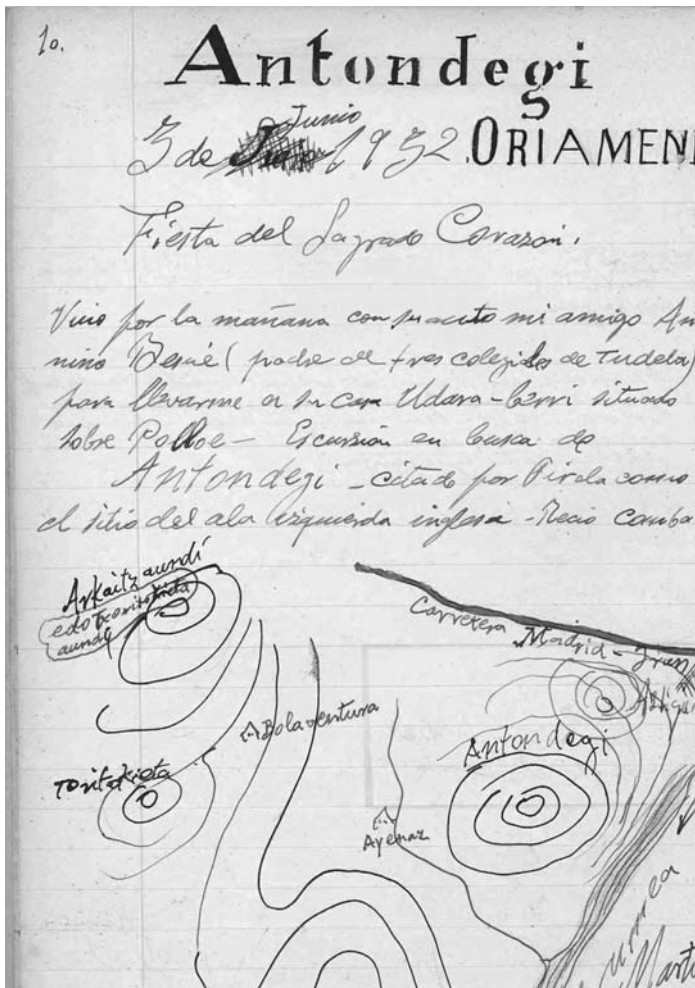 1o.
Antondegi
Junio
3 de 1932. ORIAMEN
Fiesta del Sagrado Corazón.
Vino por la mañana con su auto mi amigo An
nino Besné (padre de tres colegiales de Tudela)
para llevarme a su casa Udara-berri situado
sobre Polloe - Escursión en busca de
Antondegi - citado por Pirala como
el sitio del ala izquierda inglesa - Recio comba
Arkaitz aundi
edo txoritokieta
aundi
Carretera Madrid-Irun
Bolaventura
Antondegi
Toritokieta
Ayemaz
Urumea